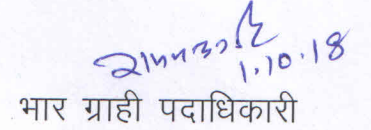 1.10.18
भार ग्राही पदाधिकारी